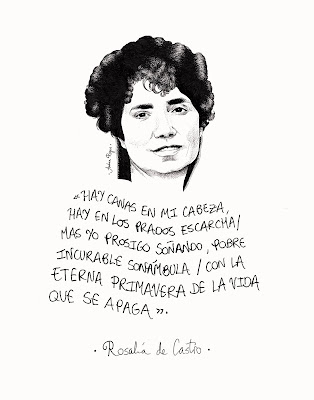 «HAY CANAS EN MI CABEZA,
HAY EN LOS PRADOS ESCARCHA/
MAS YO PROSIGO SOÑANDO, POBRE
INCURABLE SONÁMBULA / CON LA
ETERNA PRIMAVERA DE LA VIDA
QUE SE APAGA ».
· Rosalía de Castro ·